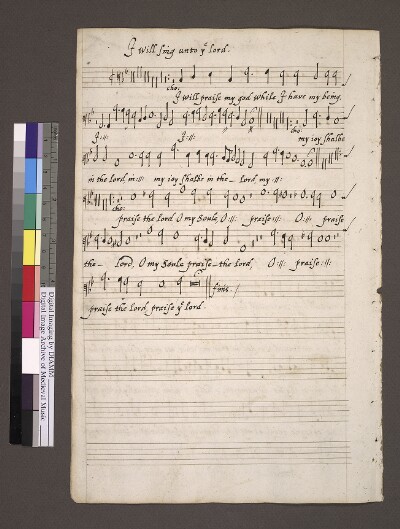 I will sing unto yͤ lord.
cho:
I will praise my god while I have my being.
I :||: I :||: cho: my ioy shalbe
in the lord in :||: my ioy shalbe in the lord, my :||:
cho:
praise the lord O my Soule, O :||: praise :||: O :||: praise
the lord, O my Soule praise the lord O :||: praise :||:
finis.
praise the lord praise yͤ lord.
Digital Imaging by DIAMM
Digital Image Archive of Medieval Music